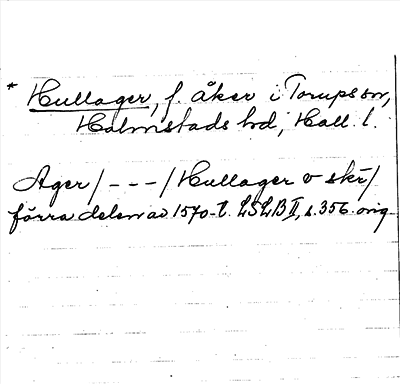 * Hullager, f. åker i Torups sn,
Halmstads hd, Hall. l.
Ager / - - - / Hullager v skr /
förra delen av 1570-t. LSLB II, s. 356. orig.